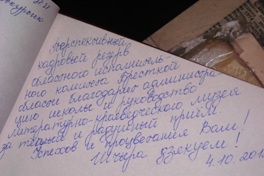 Перспективный
кадровый резерв
областного исполнитель-
ного комитета Брестской
области благодарит администра-
цию школы и руководство
литературно-краеведческого музея
за теплый и радушный приём.
Успехов и процветания Вам!
Шчыра дзякуем!
4.10.201